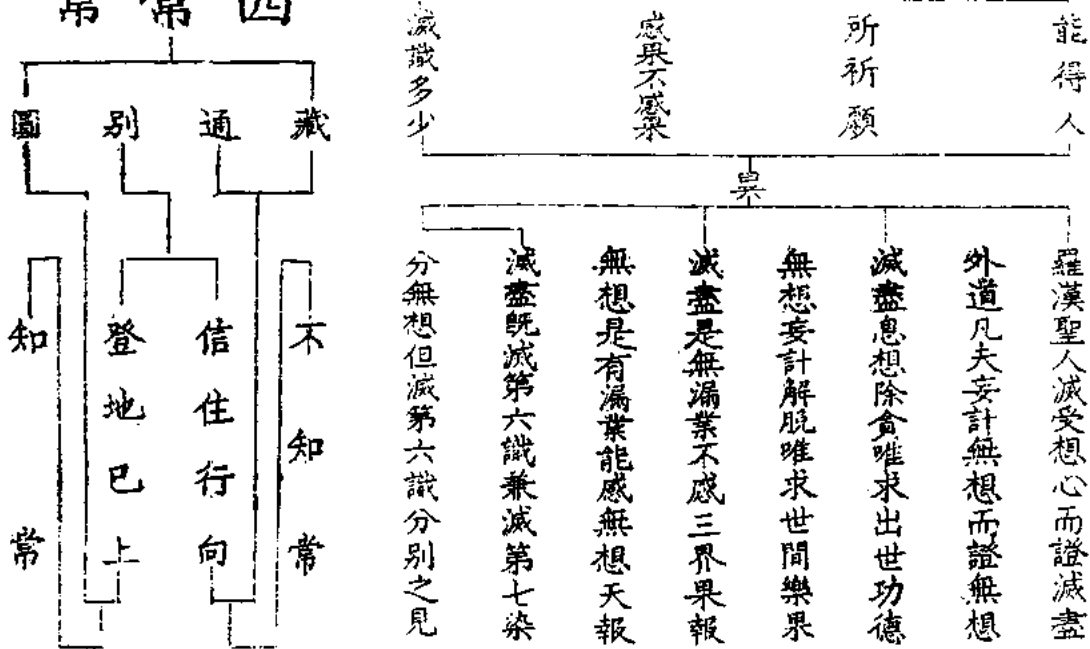 能得人
所祈願
感果不感果
滅識多少
異
羅漢聖人滅受想心而證滅盡
外道凡夫妄計無想而證無想
滅盡息想除貪唯求出世功德
無想妄計解脫唯求世間樂果
滅盡是無漏業不感三界果報
無想是有漏業能感無想天報
滅盡既滅第六識兼滅第七染
分無想但滅第六識分別之見
四常常
藏
通
別
圓
不知常
信住行向
登地已上
知常